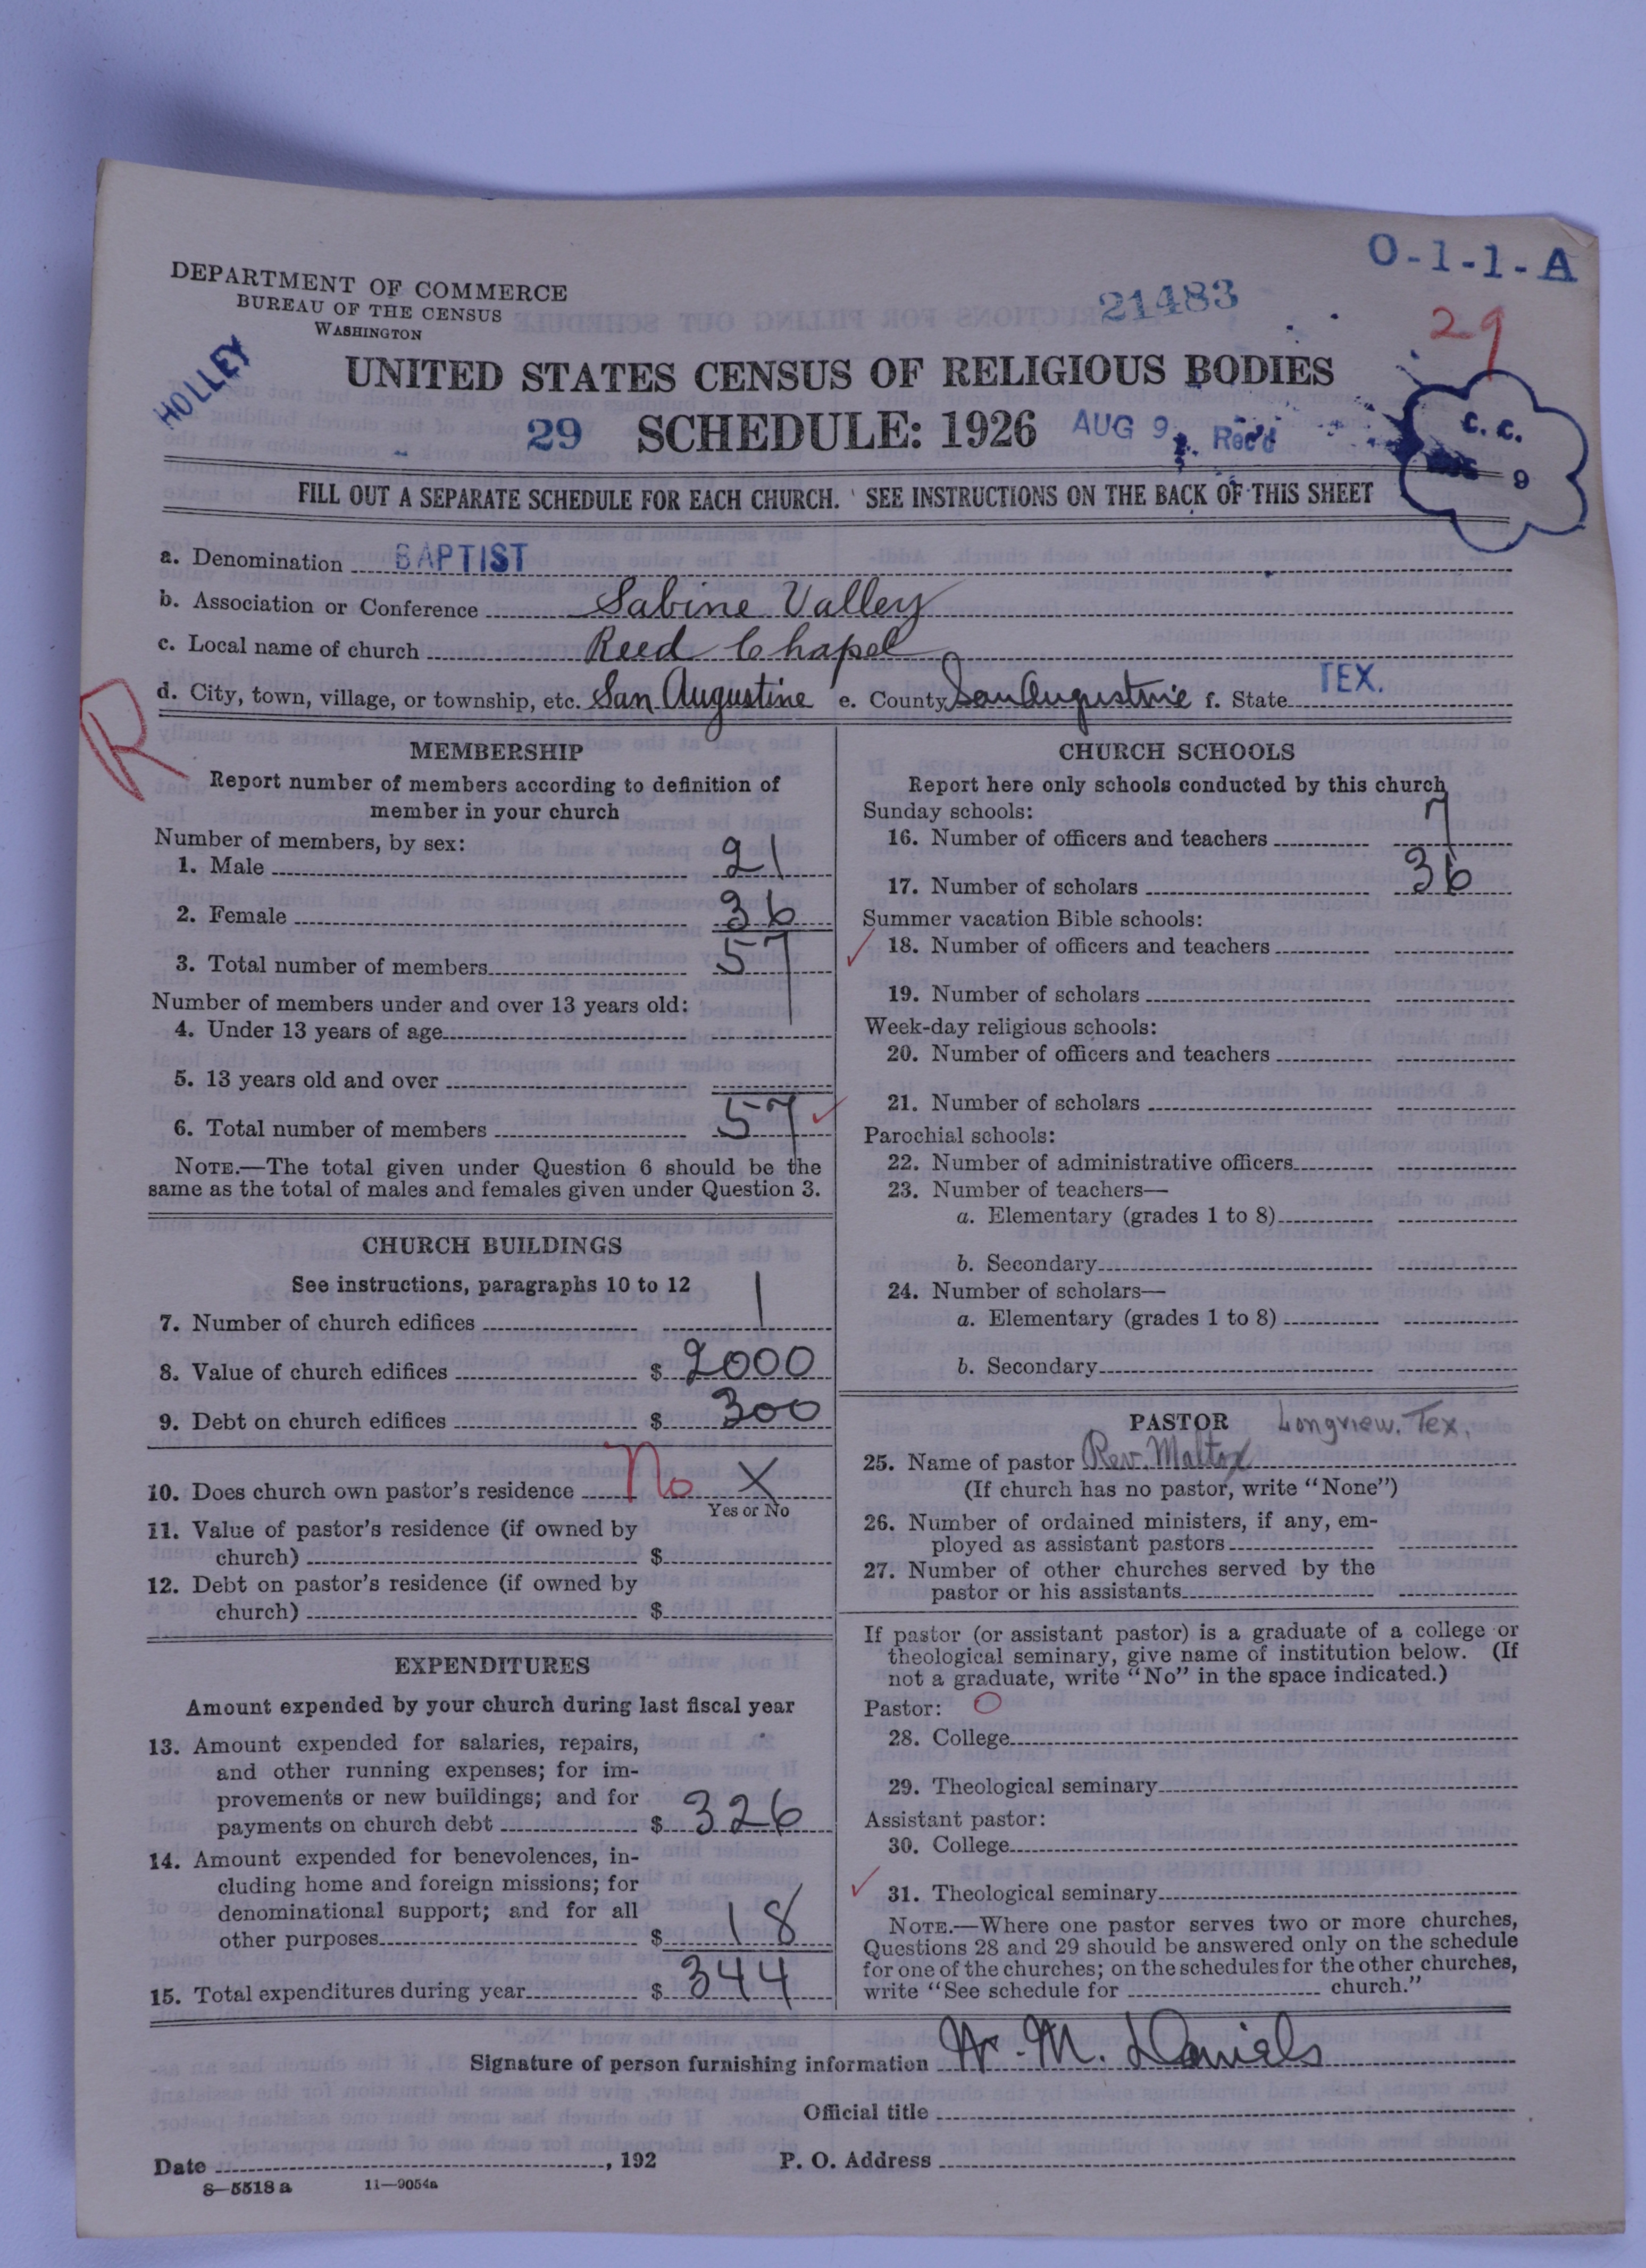 O-1-1-A
DEPARTMENT OF COMMERCE
BUREAU OF THE CENSUS
WASHINGTON
21483
29
HOLLEY
UNITED STATES CENSUS OF RELIGIOUS BODIES
29 SCHEDULE: 1926 AUG 9 Rec'd
C. C.
9
FILL OUT A SEPARATE SCHEDULE FOR EACH CHURCH. SEE INSTRUCTIONS ON THE BACK OF THIS SHEET
a. Denomination BAPTIST
b. Association or Conference Sabine Valley
c. Local name of church Reed Chapel
d. City, town, village, or township, etc. San Augustine e. County San Augustine f. State TEX.
R
MEMBERSHIP
Report number of members according to definition of
member in your church
Number of members, by sex:
1. Male 21
2. Female 36
3. Total number of members 57
Number of members under and over 13 years old:
4. Under 13 years of age
5. 13 years old and over
6. Total number of members 57
NOTE.—The total given under Question 6 should be the
same as the total of males and females given under Question 3.
CHURCH BUILDINGS
See instructions, paragraphs 10 to 12
7. Number of church edifices 1
8. Value of church edifices $ 2000
9. Debt on church edifices $ 300
10. Does church own pastor's residence No X
Yes or No
11. Value of pastor's residence (if owned by
church) $
12. Debt on pastor's residence (if owned by
church) $
EXPENDITURES
Amount expended by your church during last fiscal year
13. Amount expended for salaries, repairs,
and other running expenses; for im-
provements or new buildings; and for
payments on church debt $ 326
14. Amount expended for benevolences, in-
cluding home and foreign missions; for
denominational support; and for all
other purposes $ 18
15. Total expenditures during year $ 344
CHURCH SCHOOLS
Report here only schools conducted by this church
Sunday schools:
16. Number of officers and teachers 7
17. Number of scholars 36
Summer vacation Bible schools:
18. Number of officers and teachers
19. Number of scholars
Week-day religious schools:
20. Number of officers and teachers
21. Number of scholars
Parochial schools:
22. Number of administrative officers
23. Number of teachers—
a. Elementary (grades 1 to 8)
b. Secondary
24. Number of scholars—
a. Elementary (grades 1 to 8)
b. Secondary
PASTOR Longview. Tex.
25. Name of pastor Rev. Maltox
(If church has no pastor, write "None")
26. Number of ordained ministers, if any, em-
ployed as assistant pastors
27. Number of other churches served by the
pastor or his assistants
If pastor (or assistant pastor) is a graduate of a college or
theological seminary, give name of institution below. (If
not a graduate, write "No" in the space indicated.)
Pastor: O
28. College
29. Theological seminary
Assistant pastor:
30. College
31. Theological seminary
NOTE.—Where one pastor serves two or more churches,
Questions 28 and 29 should be answered only on the schedule
for one of the churches; on the schedules for the other churches,
write "See schedule for church."
Signature of person furnishing information W. M. Daniels
Official title
Date , 192 P. O. Address
8—5518 a 11—9054a